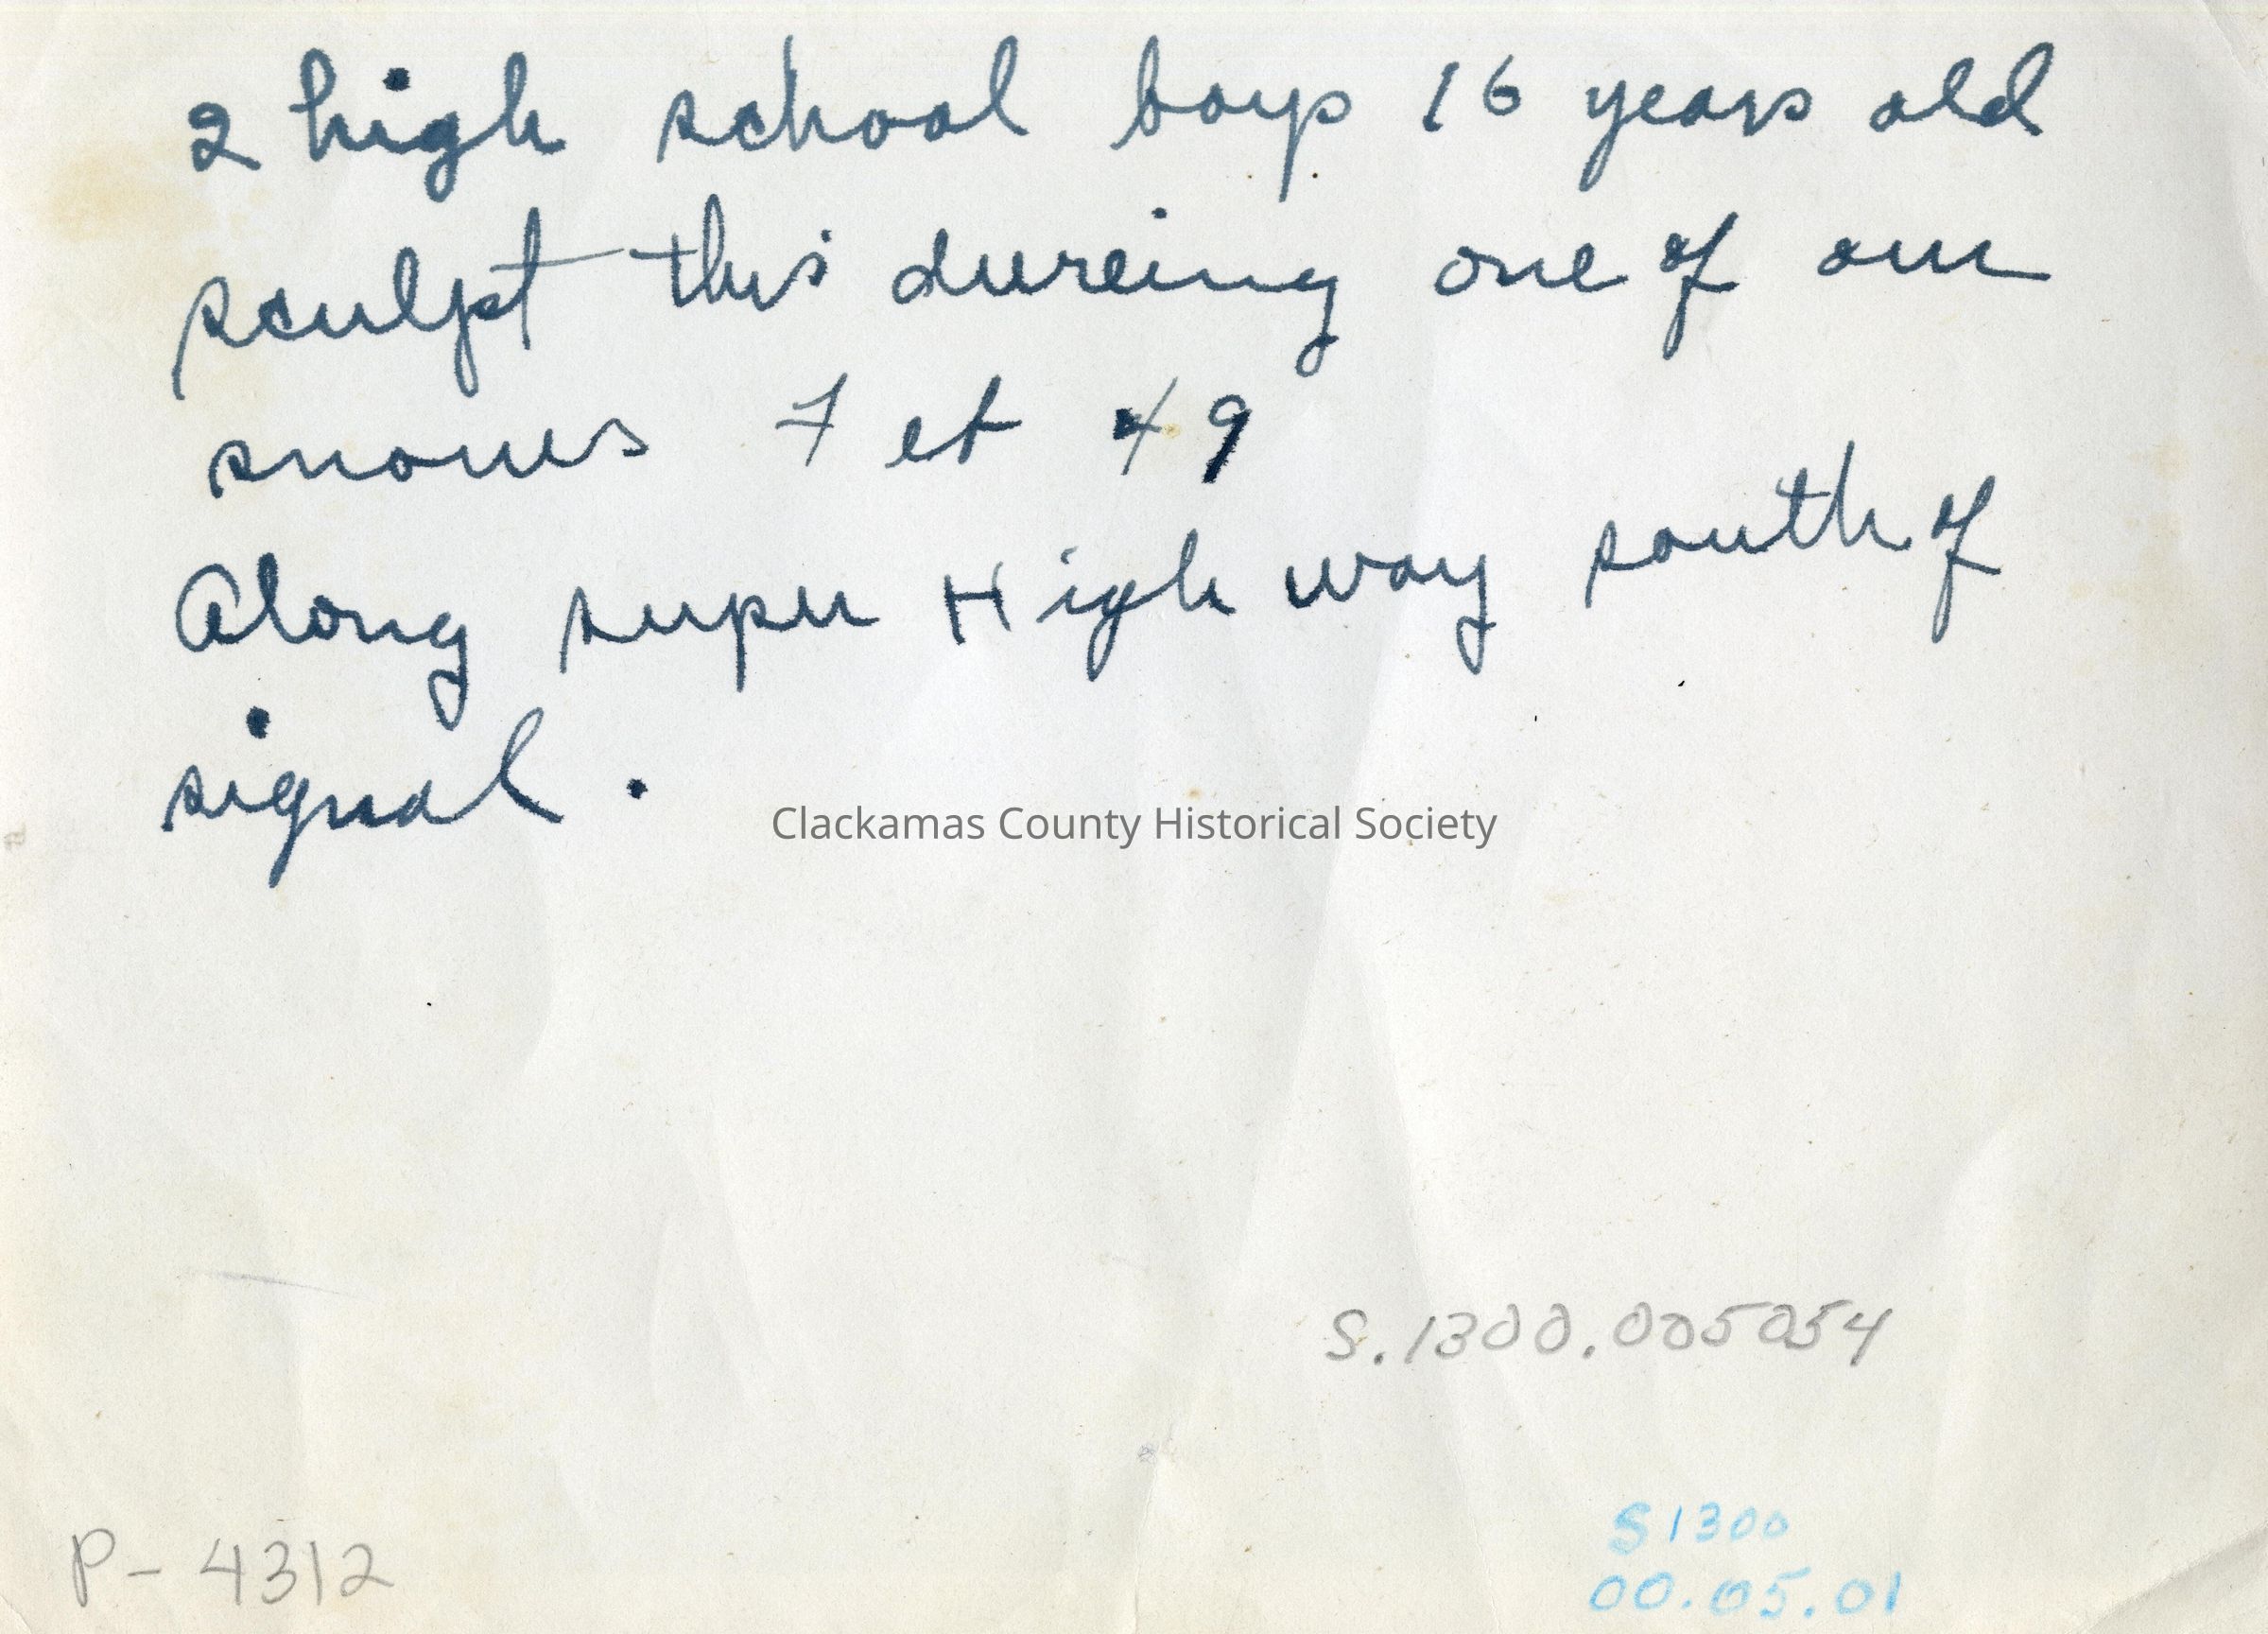 2 high school boys 16 years old
sculpt this dureing one of our
snows 7 eb 49
Along super High way south of
signal.
Clackamas County Historical Society
S.1300.005054
P-4312
S1300
00.05.01